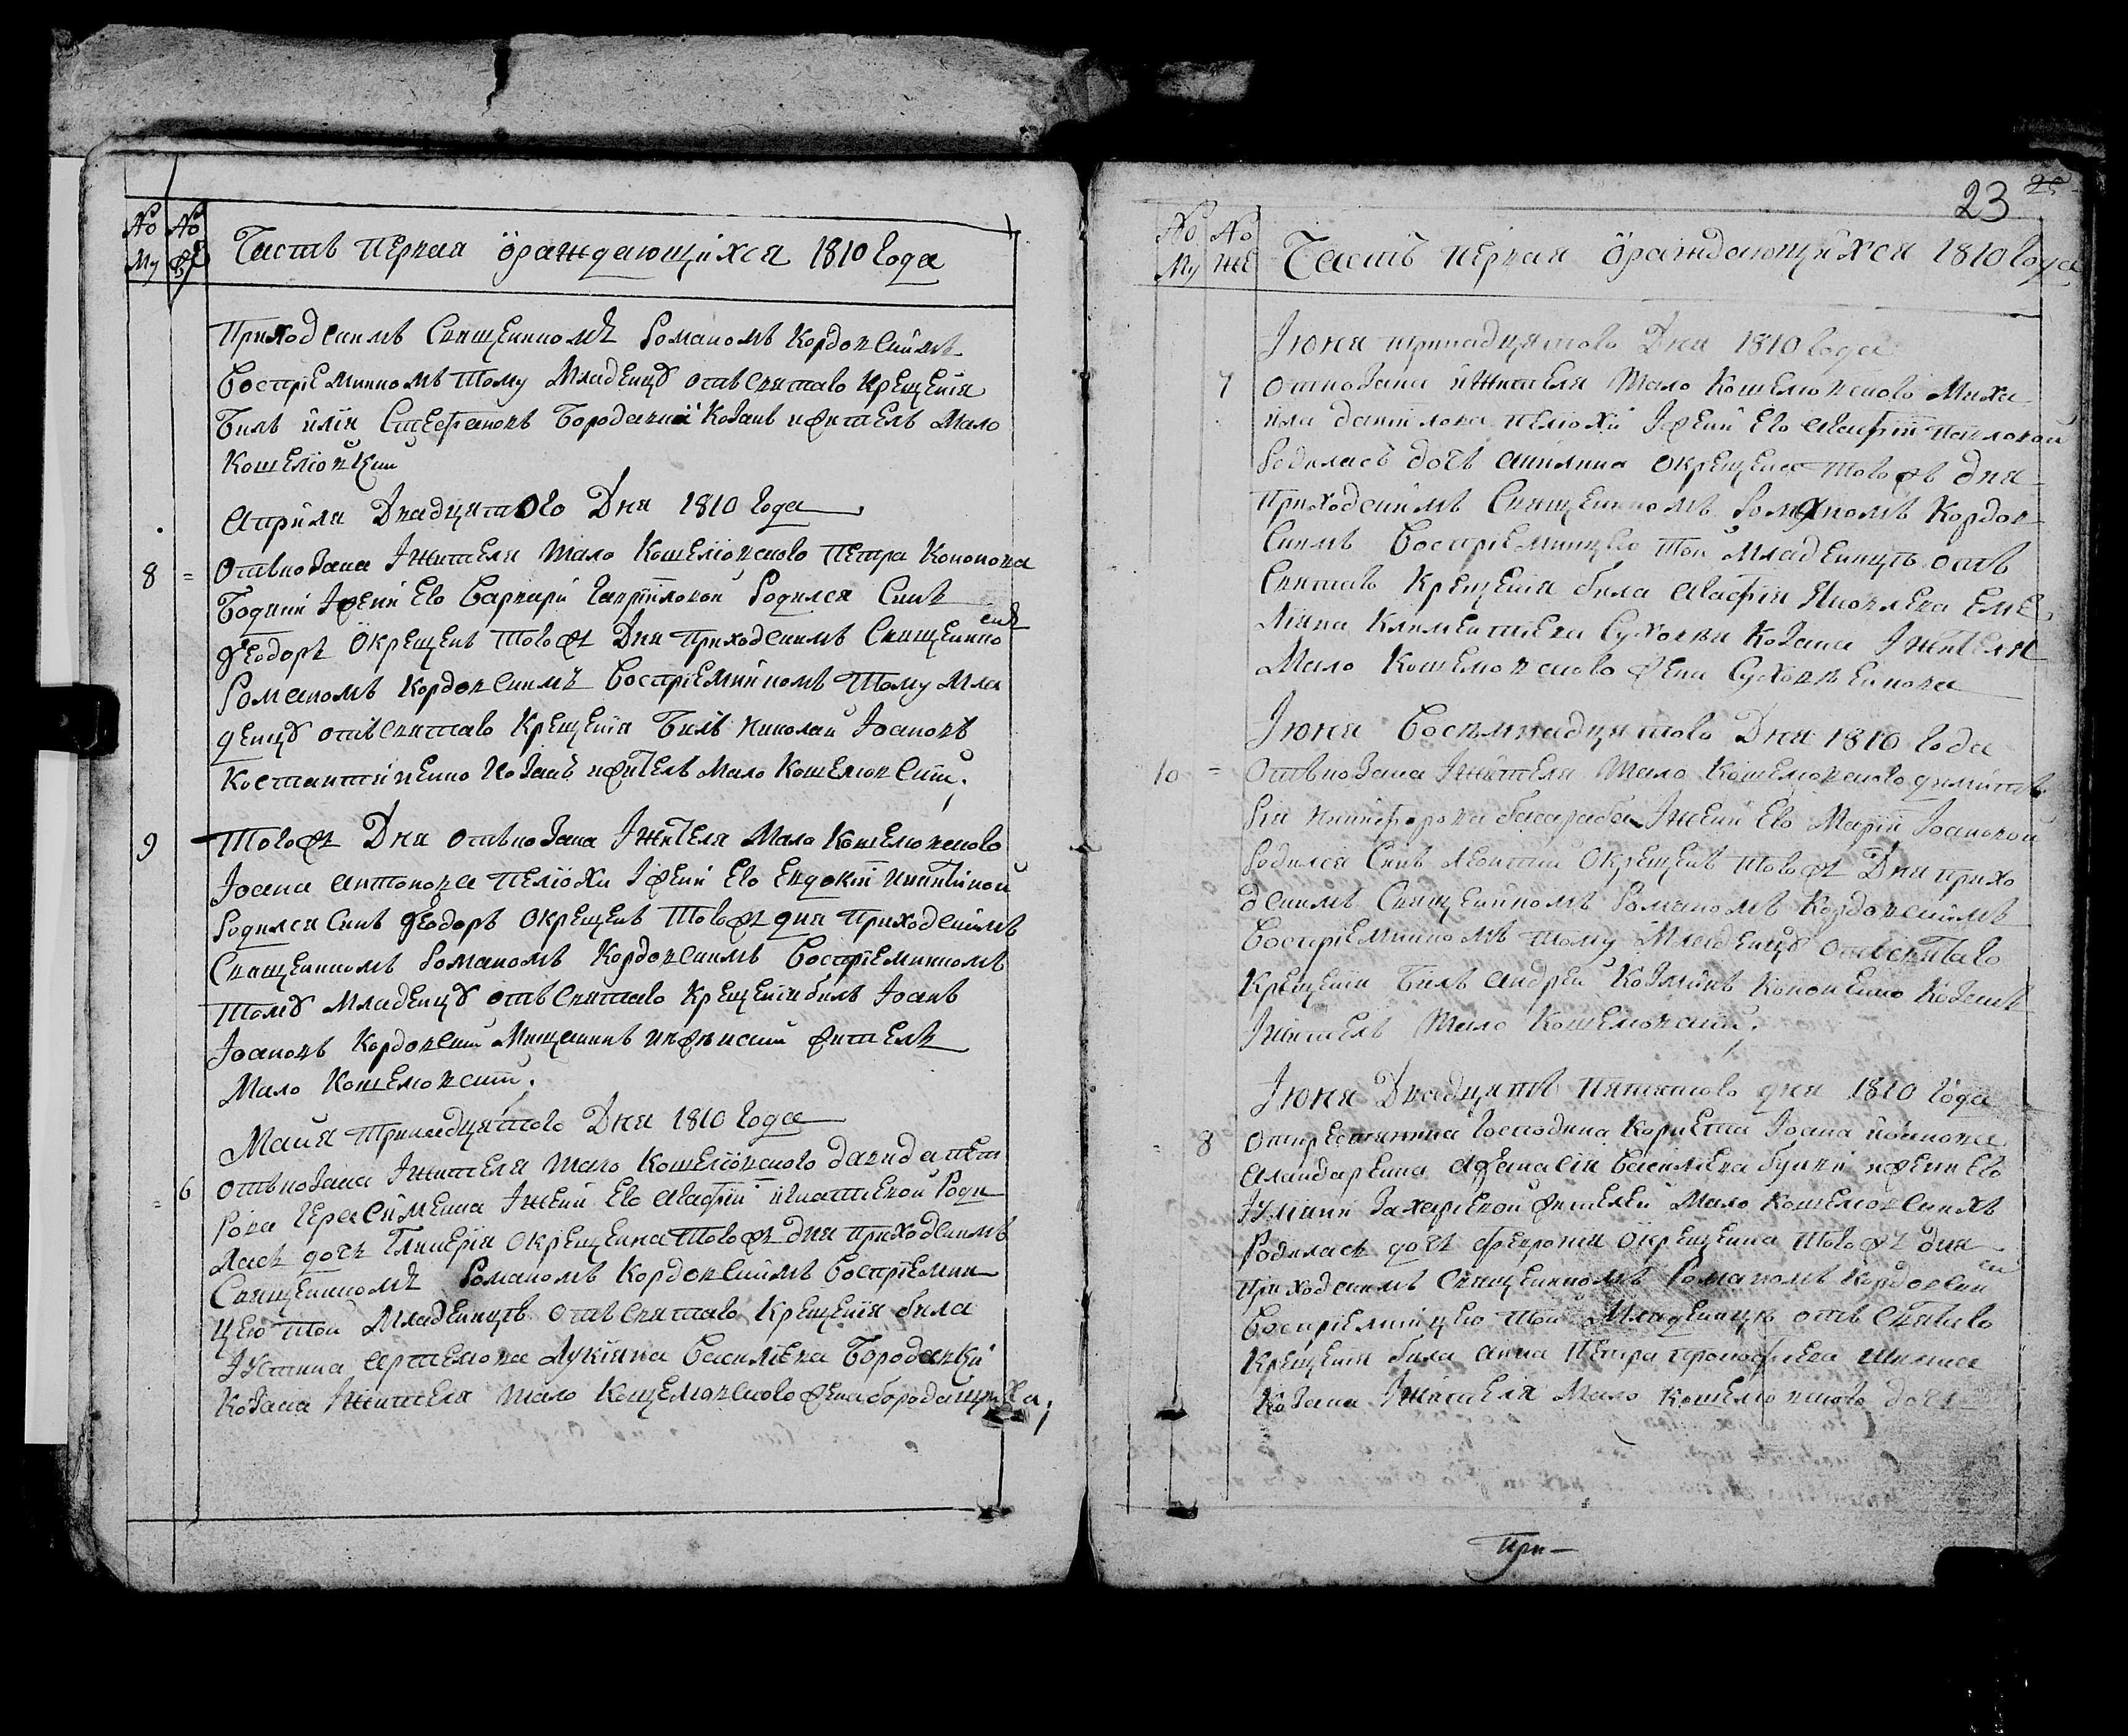 № №
Му Же
Часть первая ораждающихся 1810 года
Приходскимъ Священникомъ Романомъ Кордовскимъ
Воспріемникомъ тому младенцу отъ святаго крещенія
билъ илія Стефановъ Бородавкій Козакъ ижитель Мало
Кошелювкій
Апріля Двадцятого Дня 1810 года
8 = Отъкозака Iжителя Мало Кошелювского Петра Кононова
Iженіи Его Варвари Гавріиловой Родился Синъ
Феодоръ Окрещенъ Тогожъ Дня приходскимъ Священнико
Романомъ Кордовскимъ Воспріемникомъ Тому Мла
денцу отъ святаго Крещенія Билъ Николай Iоановъ
Костантіненко Козакъ ижитель Мало Кошелювскій;
9 Тогожъ Дня отъкозака Iжителя Мало Кошелювского
Iоана Антонова Пелюхи Iженіи Его Евдокіи
Родился Синъ Феодоръ Окрещенъ Тогожъ дня Приходскимъ
Священникомъ Романомъ Кордовскимъ Воспріемникомъ
Тому Младенцу отъ святаго Крещенія билъ Iоанъ
Iоановъ Кордовскій Мищанинъ житель
Мало Кошелювскій.
Майя Тринадцятого Дня 1810 года
= 6 отъкозака Iжителя Мало Кошелювского Давида Пет
рова Герасименка Iженіи Его Агафіи Игнатіевой Роди
лась дочь Гликерія Окрещенна Тогожъ дня Приходскимъ
Священникомъ Романомъ Кордовскимъ Воспріемни
цею Той Младеницъ отъ святаго Крещенія била
Iустина Артемова Лукіяна Василіева Бородавки
Козака Iжителя Мало Кошелювского жена
23 25
№ №
Му Же
Часть первая ораждающихся 1810 года
Iюня тринадцятого Дня 1810 года
7 откозака ижителя Мало Кошелювского Миха
ила Даніілова Пелюхи Iженіи Его Агафіи Павловой
Родилась дочь Акилина Окрещена Тогожъ дня
Приходскимъ Священникомъ Романомъ Кордов
скимъ Воспріемницею Той Младеницъ отъ
Святагъ Крещенія била Агафія Яковлева Емѣ
ліяна Климентіева Козака Iжителя
Мало Кошелювского жена
Iюня Восемнадцятого Дня 1810 года
10 = Отъкозака Iжителя Мало Кошелювского Димит
рія Никифорова Iженіи Его Маріи Iоановой
Родился Синъ Леонтій Окрещенъ Тогожъ Дня прихо
дскимъ Священникомъ Романомъ Кордовскимъ
Воспріемникомъ тому Младенцу отъ святаго
Крещенія Билъ Андрей Козмінъ Кононенко Козакъ
Iжитель Мало Кошелювскій;
Iюня Двадцять Пятятого дня 1810 года
= 8 открестянина Господина Корнета Iоана
Афанасія Василіева ижени Его
Захаріевой жителей Мало Кошелювскихъ
Родилась дочъ Февронія Окрещенна Тогожъ дня
Приходскимъ Священникомъ Романомъ Кордовским
Воспріемницею Той Младеницъ отъ Святаго
Крещенія била Анна Петра
Козака Iжителя Мало Кошелювского дочъ
При—